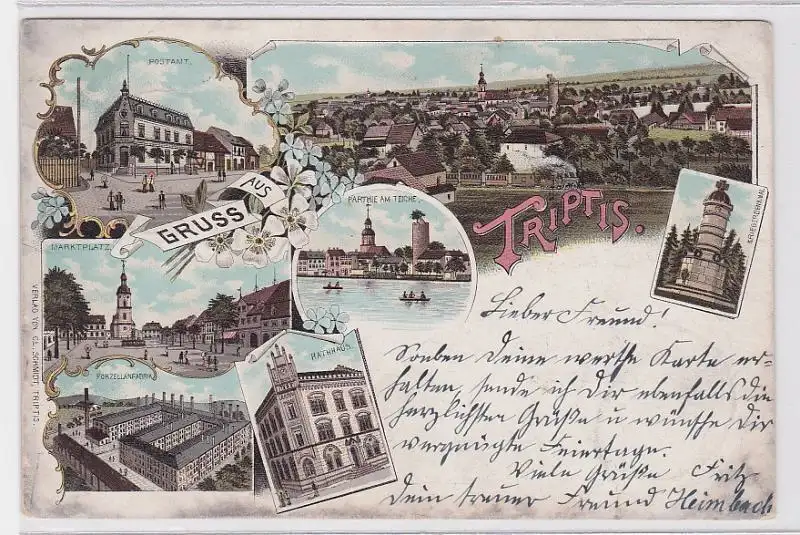 POSTAMT.
GRUSS AUS
TRIPTIS.
PARTHIE AM TEICHE.
KRIEGERDENKMAL
MARKTPLATZ
RATHHAUS.
PORZELLANFABRIK
VERLAG VON GL. SCHMIDT, TRIPTIS.
Lieber Freund!
Soeben Deine werthe Karte er-
halten, sende ich Dir ebenfalls die
herzlichsten Grüße u wünsche Dir
vergnügte Feiertage.
Viele Grüße Fritz
Dein treuer Freund Heimbach